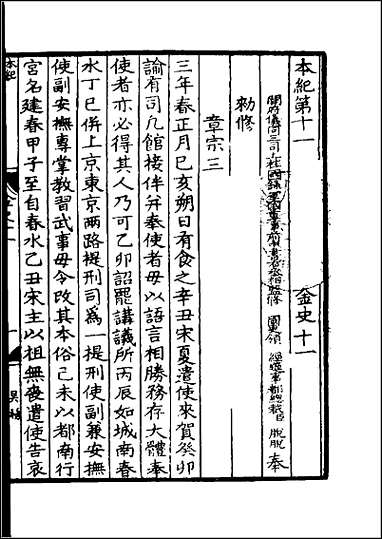 本紀第十一　金史十一
開府儀同三司上柱國錄軍國重事前中書右丞相監修　國史領　經筵事都總裁臣脫脫奉
勑修
章宗三
三年春正月己亥朔日有食之辛丑宋夏遣使來賀癸卯
諭有司凡館接伴并奉使者毋以語言相勝務存大體奉
使者亦必得其人乃可乙卯詔罷講議所丙辰如城南春
水丁巳併上京東京兩路提刑司爲一提刑使副兼安撫
使副安撫專掌教習武事毋令改其本俗己未以都南行
宮名建春甲子至自春水乙丑宋主以祖母喪遣使告哀
本紀
金史十一
一